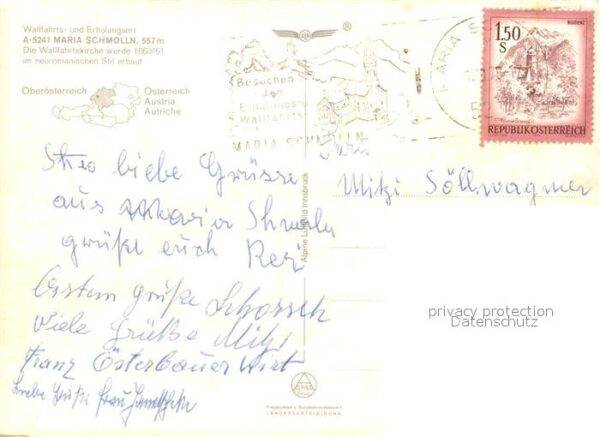 Wallfahrts- und Erholungsort
A-5241 MARIA SCHMOLLN, 557 m
Die Wallfahrtskirche wurde 1860/61
im neuromanischen Stil erbaut
Oberösterreich
Österreich
Austria
Autriche
Besuchen
den
Erholungs
Wallfahrts
MARIA SCHMOLLN
MARIA S
1.50
S
BLUDENZ
REPUBLIK ÖSTERREICH
liebe Grüsse
aus Maria
grüßt euch Resi
Mitzi Söllwagner
grüße Schorsch
Viele Grüße Mitzi
Franz Österbauer Wirt
Liebe Grüße Frau
Alpine Luftbild Innsbruck
LANDESVERTEIDIGUNG
privacy protection
Datenschutz